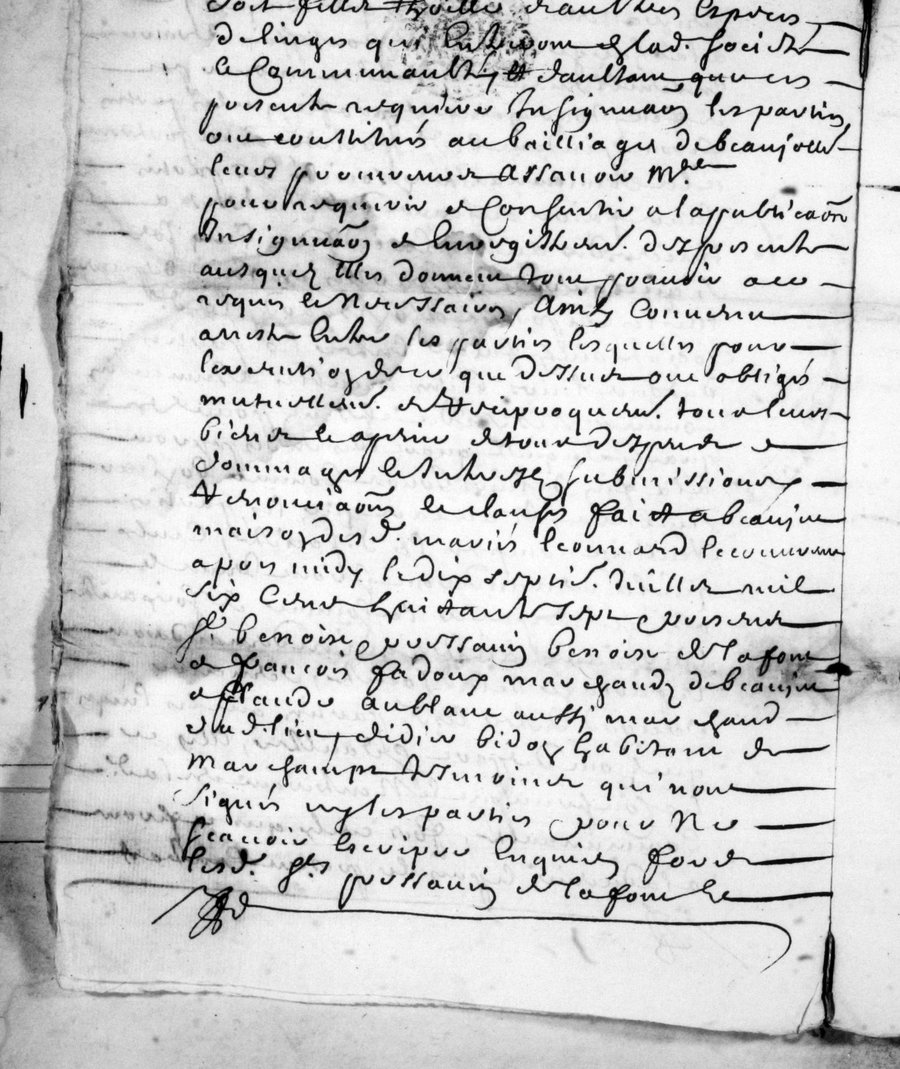 soit fille & & d'aultres especes
de linges qui entreront en lad. société
& communaulté, et d'aultant que ces
presente requiere insignuaõn les parties
ont constitués au bailliage de beaujollois
leurs procureurs assavoir Mre
pour requerir et consentir a la publicaõn
insignuaõn et enregistremt. des presente
ausquelz elles donnent tout pouvoir a ce
requis & necessaire, Ainsy convenu
arresté entre les parties lesquelles pour
l'execution de ce que dessus ont obligés
mutuellemt. et reciproquemt. tous leurs
biens & a peine de tous despens
dommages & interestz submissions
renonciaõns & clauses fait a beaujeu
maison desd. mariés leonnard & couverte
apres midy le dix septie. Juillet mil
six cent huictante sept presents
sr. benoist poussain benoist de la font
et françois fadoux marchandz de beaujeu
et claude aublanc aussi marchand
dud. lieu, didier bidon habitant de
marchampt tesmoins qui n'ont
signés ny les parties pour ne
scavoir escripre enquis fors
lesd. srs poussain de la font &